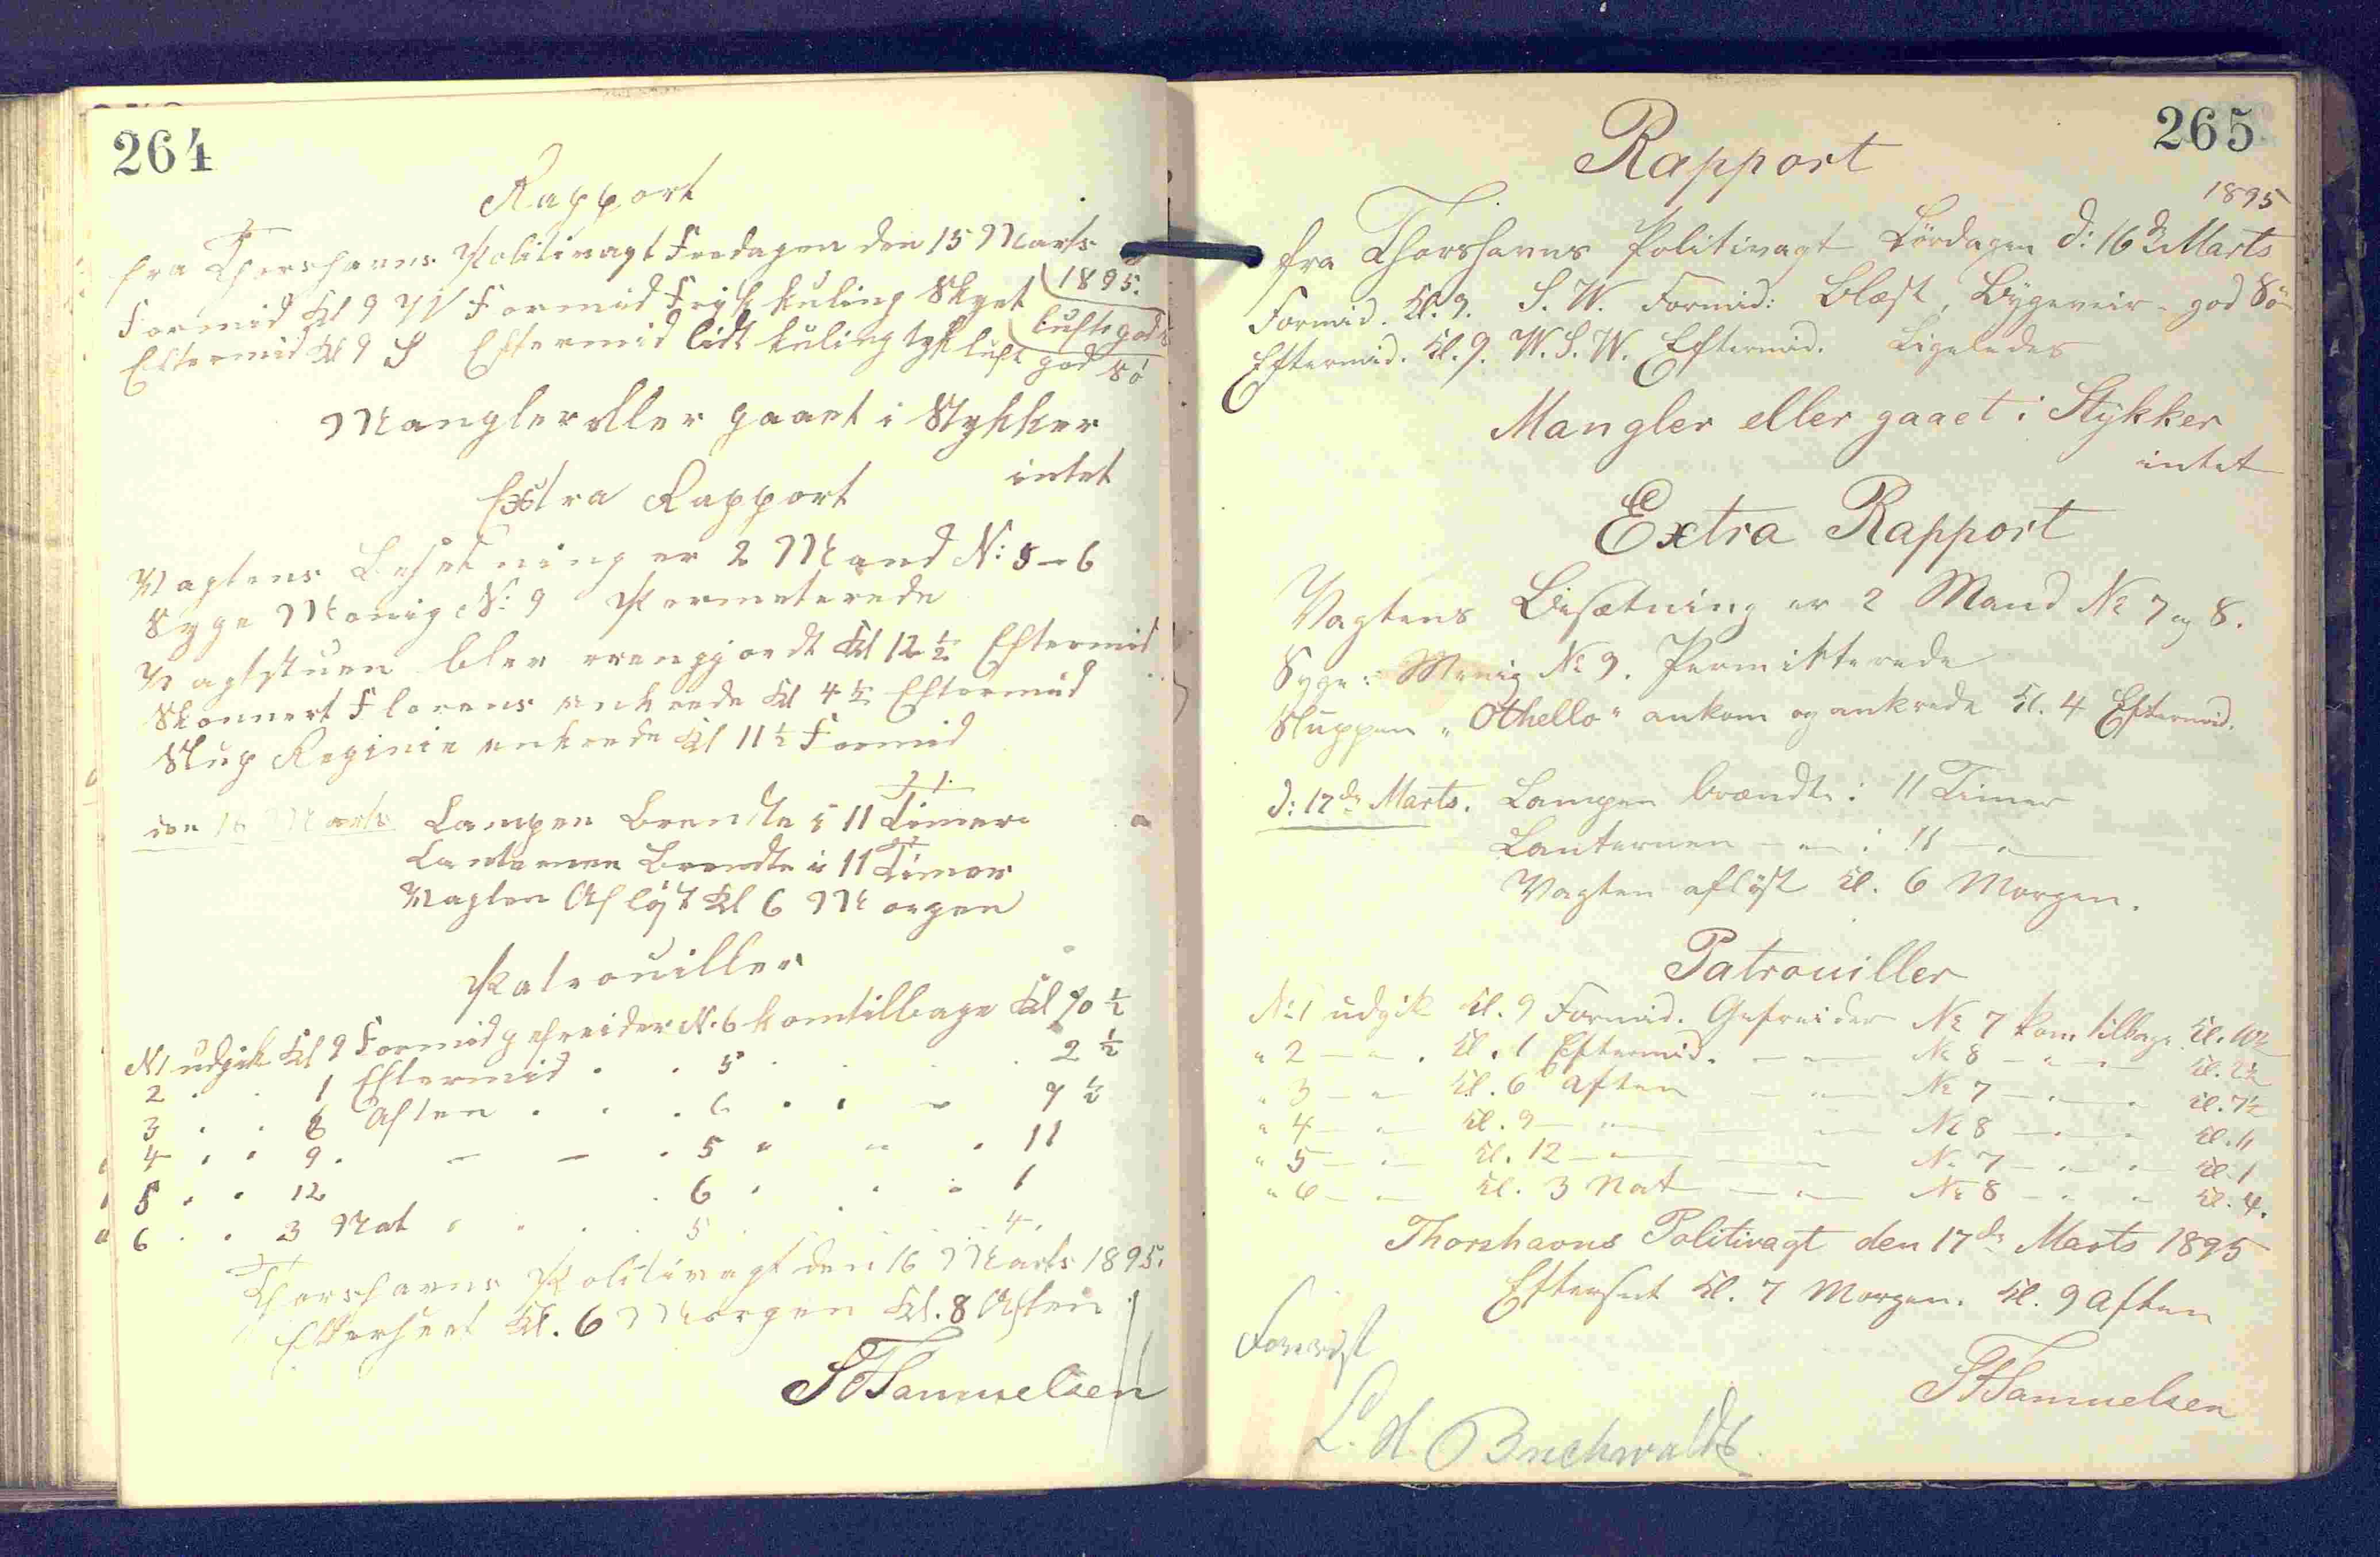 264
Rapport
fra Thorshavns Politivagt Fredagen den 15 Marts
1895.
Formid Kl 9 Formid Frisk kuling Skyet luft god Sö
Eftermid Kl 9 S Eftermid lidt kuling tyk luft god Sö
Mangler eller gaaet i Stykker
intet
Extra Rapport
Vagtens Besetning er 2 Mand N: 5 - 6
Syge Menig N: 9 Permeterede
Vagtstuen blev rengjordt Kl 12½ Eftermid
Skonnert Florens ankrede Kl 4½ Eftermid
Slup Reginie ankrede Kl 11½ Formid
den 16 Marts Lampen Brendte i 11 Timer
Lanternen Brendte i 11 Timer
Vagten Aflöst Kl 6 Morgen
Patrouiller
N1 udgik Kl 9 Formid gefreider N. 6 kom tilbage Kl 10½
2 . . 1 Eftermid . . 5 . . . 2½
3 . . 6 Aften . . . 6 . . . 7½
4 . . 9 . - - . 5 " " . 11
5 . . 12 . 6 . . . 1
6 . . 3 Nat . . . . 5 . . . 4.
Thorshavns Politivagt den 16 Marts 1895.
Efterseet Kl. 6 Morgen Kl. 8 Aften
Samuelsen
265
Rapport
1895
fra Thorshavns Politivagt Lördagen d: 16de Marts
Formid. Kl. 9. S. W. Formid: Blæst, Bygeveir - god Sö
Eftermid. Kl. 9. W. S. W. Eftermid. Ligeledes
Mangler eller gaaet i Stykker
intet
Extra Rapport
Vagtens Besætning er 2 Mand No 7 og 8.
Syge: Menig No 9. Permitterede
Sluppen "Othello" ankom og ankrede Kl. 4 Eftermid.
d: 17de Marts. Lampen brændte i 11 Timer
Lanternen - " - i 11 - " -
Vagten aflöst Kl. 6 Morgen.
Patrouiller
No 1 udgik Kl. 9 Formid. Gefreider No 7 kom tilbage Kl. 10½
" 2 - " . Kl. 1 Eftermid. - " - No 8 - " - " - Kl. 2½
" 3 - " - Kl. 6 Aften - " - No 7 - " - " Kl. 7½
" 4 - " - Kl. 9 - " - - " - No 8 - " - " Kl. 11
" 5 - " - Kl. 12 - " - - " - No 7 - " - " Kl. 1
" 6 - " - Kl. 3 Nat - " - No 8 - " - " Kl. 4.
Thorshavns Politivagt den 17de Marts 1895
Efterseet Kl. 7 Morgen. Kl. 9 Aften
Forevist
Samuelsen
L. H. Buchwaldt